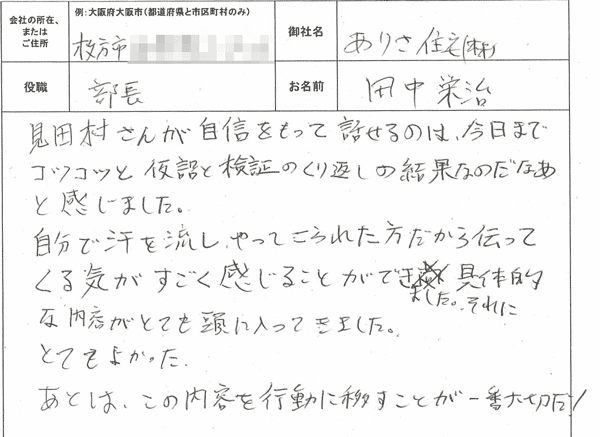 会社の所在、
または
ご住所
例:大阪府大阪市(都道府県と市区町村のみ)
枚方市
御社名
ありさ住宅(株)
役職
部長
お名前
田中栄治
見田村さんが自信をもって話せるのは、今日まで
コツコツと仮説と検証のくり返しの結果なのだなあ
と感じました。
自分で汗を流し、やってこられた方だから伝って
くる気がすごく感じることができ 具体的
ました。それに
な内容がとても頭に入ってきました。
とてもよかった
あとは、この内容を行動に移すことが一番大切だ!